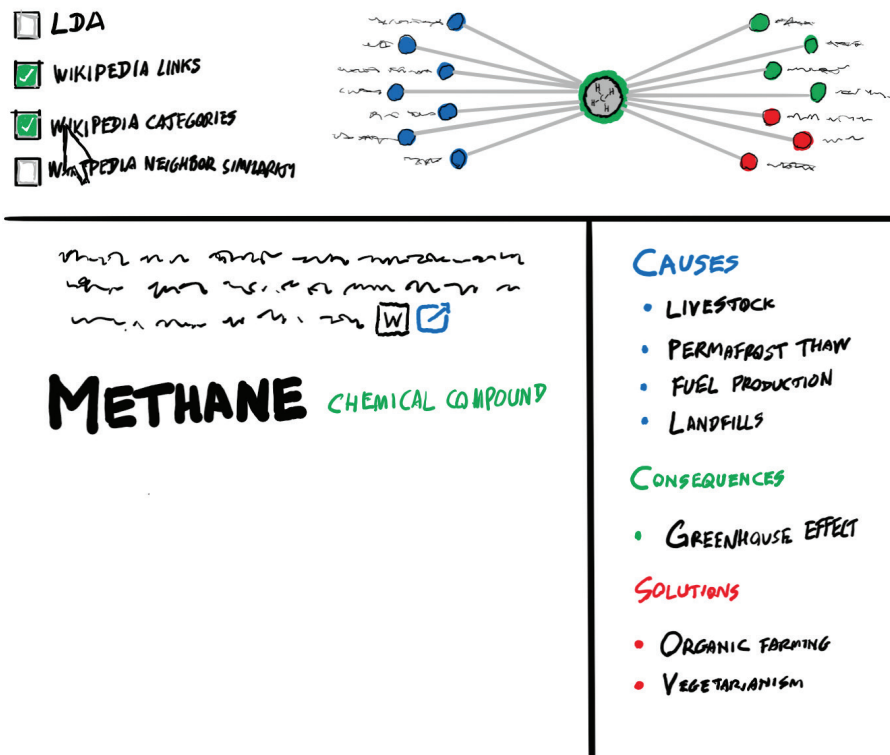 LDA
WIKIPEDIA LINKS
WIKIPEDIA CATEGORIES
WIKIPEDIA NEIGHBOR SIMILARITY
H
H C H
H
W
METHANE CHEMICAL COMPOUND
CAUSES
• LIVESTOCK
• PERMAFROST THAW
• FUEL PRODUCTION
• LANDFILLS
CONSEQUENCES
• GREENHOUSE EFFECT
SOLUTIONS
• ORGANIC FARMING
• VEGETARIANISM